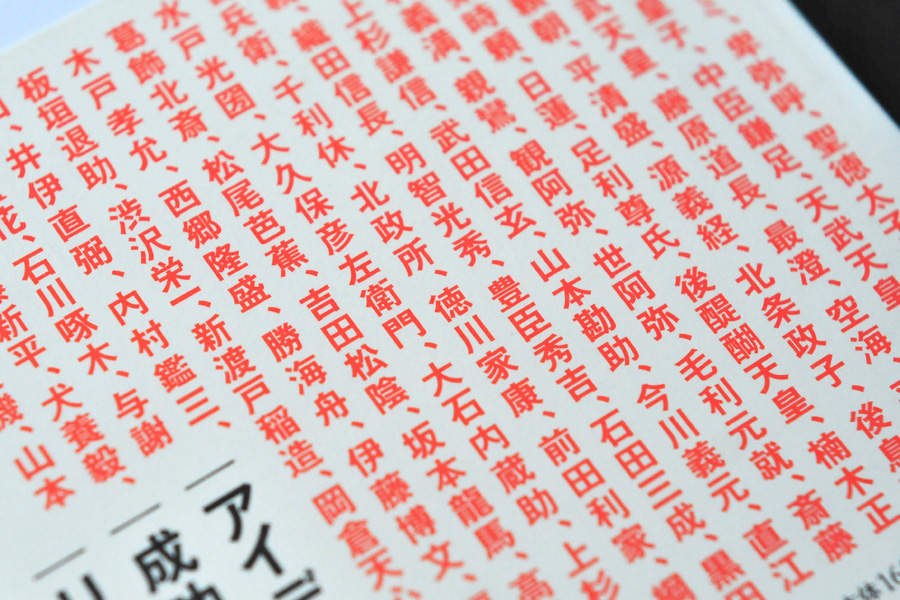 卑弥呼、聖徳太子
皇子、中臣鎌足、天武天皇
武天皇、藤原道長、最澄、空海、
朝、平清盛、源義経、北条政子、後
時頼、日蓮、足利尊氏、後醍醐天皇、楠木正
義満、親鸞、観阿弥、世阿弥、毛利元就、斎藤
上杉謙信、武田信玄、山本勘助、今川義元、直江
織田信長、明智光秀、豊臣秀吉、石田三成、黒田
兵衛、千利休、北政所、徳川家康、前田利家、
水戸光圀、大久保彦左衛門、大石内蔵助、上杉
葛飾北斎、松尾芭蕉、吉田松陰、坂本龍馬、高
木戸孝允、西郷隆盛、勝海舟、伊藤博文、
板垣退助、渋沢栄一、新渡戸稲造、岡倉天心
井伊直弼、内村鑑三、
花、石川啄木、与謝
新平、犬養毅、
磯、山本
アイデ
成